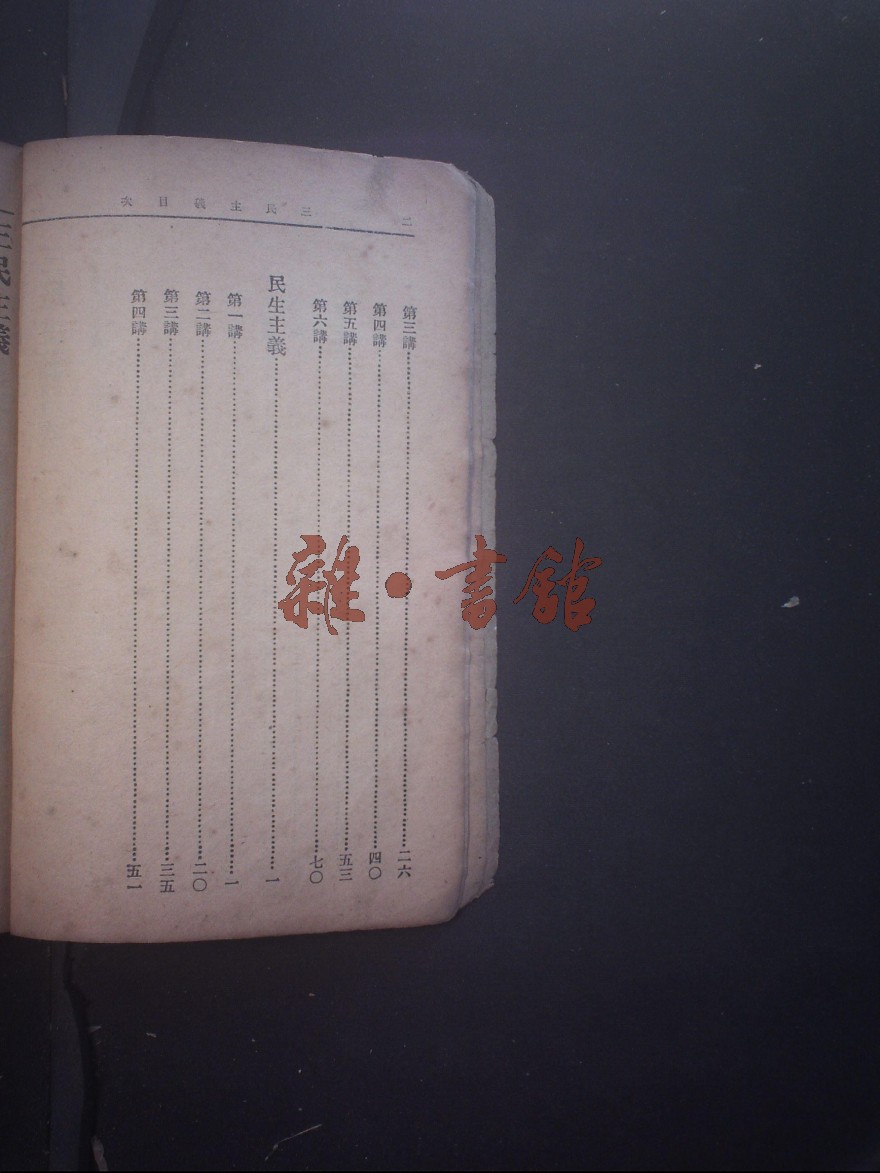 二 三民主義目次
第三講……二六
第四講……四〇
第五講……五三
第六講……七〇
民生主義……一
第一講……一
第二講……二〇
第三講……三五
第四講……五一
三民主義
雜·書館